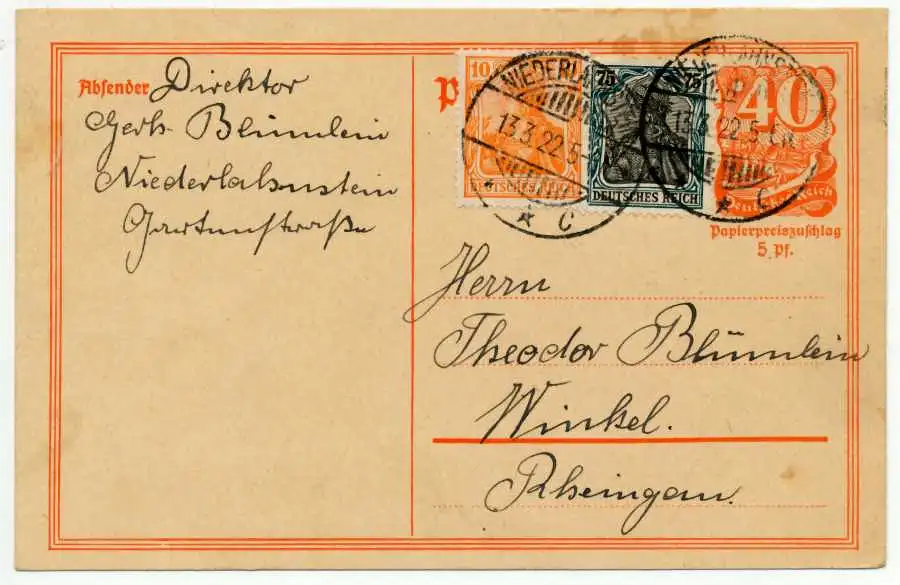 Absender Direktor
Gerh. Blümlein
Niederlahnstein
Gartenstraße
P
10
DEUTSCHES
75 75
DEUTSCHES REICH
NIEDERLAHNSTEIN
13.3.22.5-
* C
NIEDERLAHNSTEIN
13.3.22.5-6N
* C
40
Deutsches Reich
Papierpreiszuschlag
5 Pf.
Herrn
Theodor Blümlein
Winkel.
Rheingau.